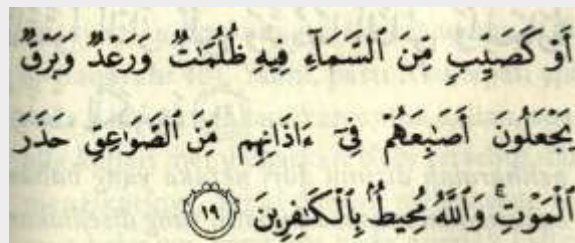 أَوْ كَصَيِّبٍ مِّنَ ٱلسَّمَآءِ فِيهِ ظُلُمَٰتٌ وَرَعْدٌ وَبَرْقٌ
يَجْعَلُونَ أَصَٰبِعَهُمْ فِىٓ ءَاذَانِهِم مِّنَ ٱلصَّوَٰعِقِ حَذَرَ
ٱلْمَوْتِ ۚ وَٱللَّهُ مُحِيطٌۢ بِٱلْكَٰفِرِينَ ١٩